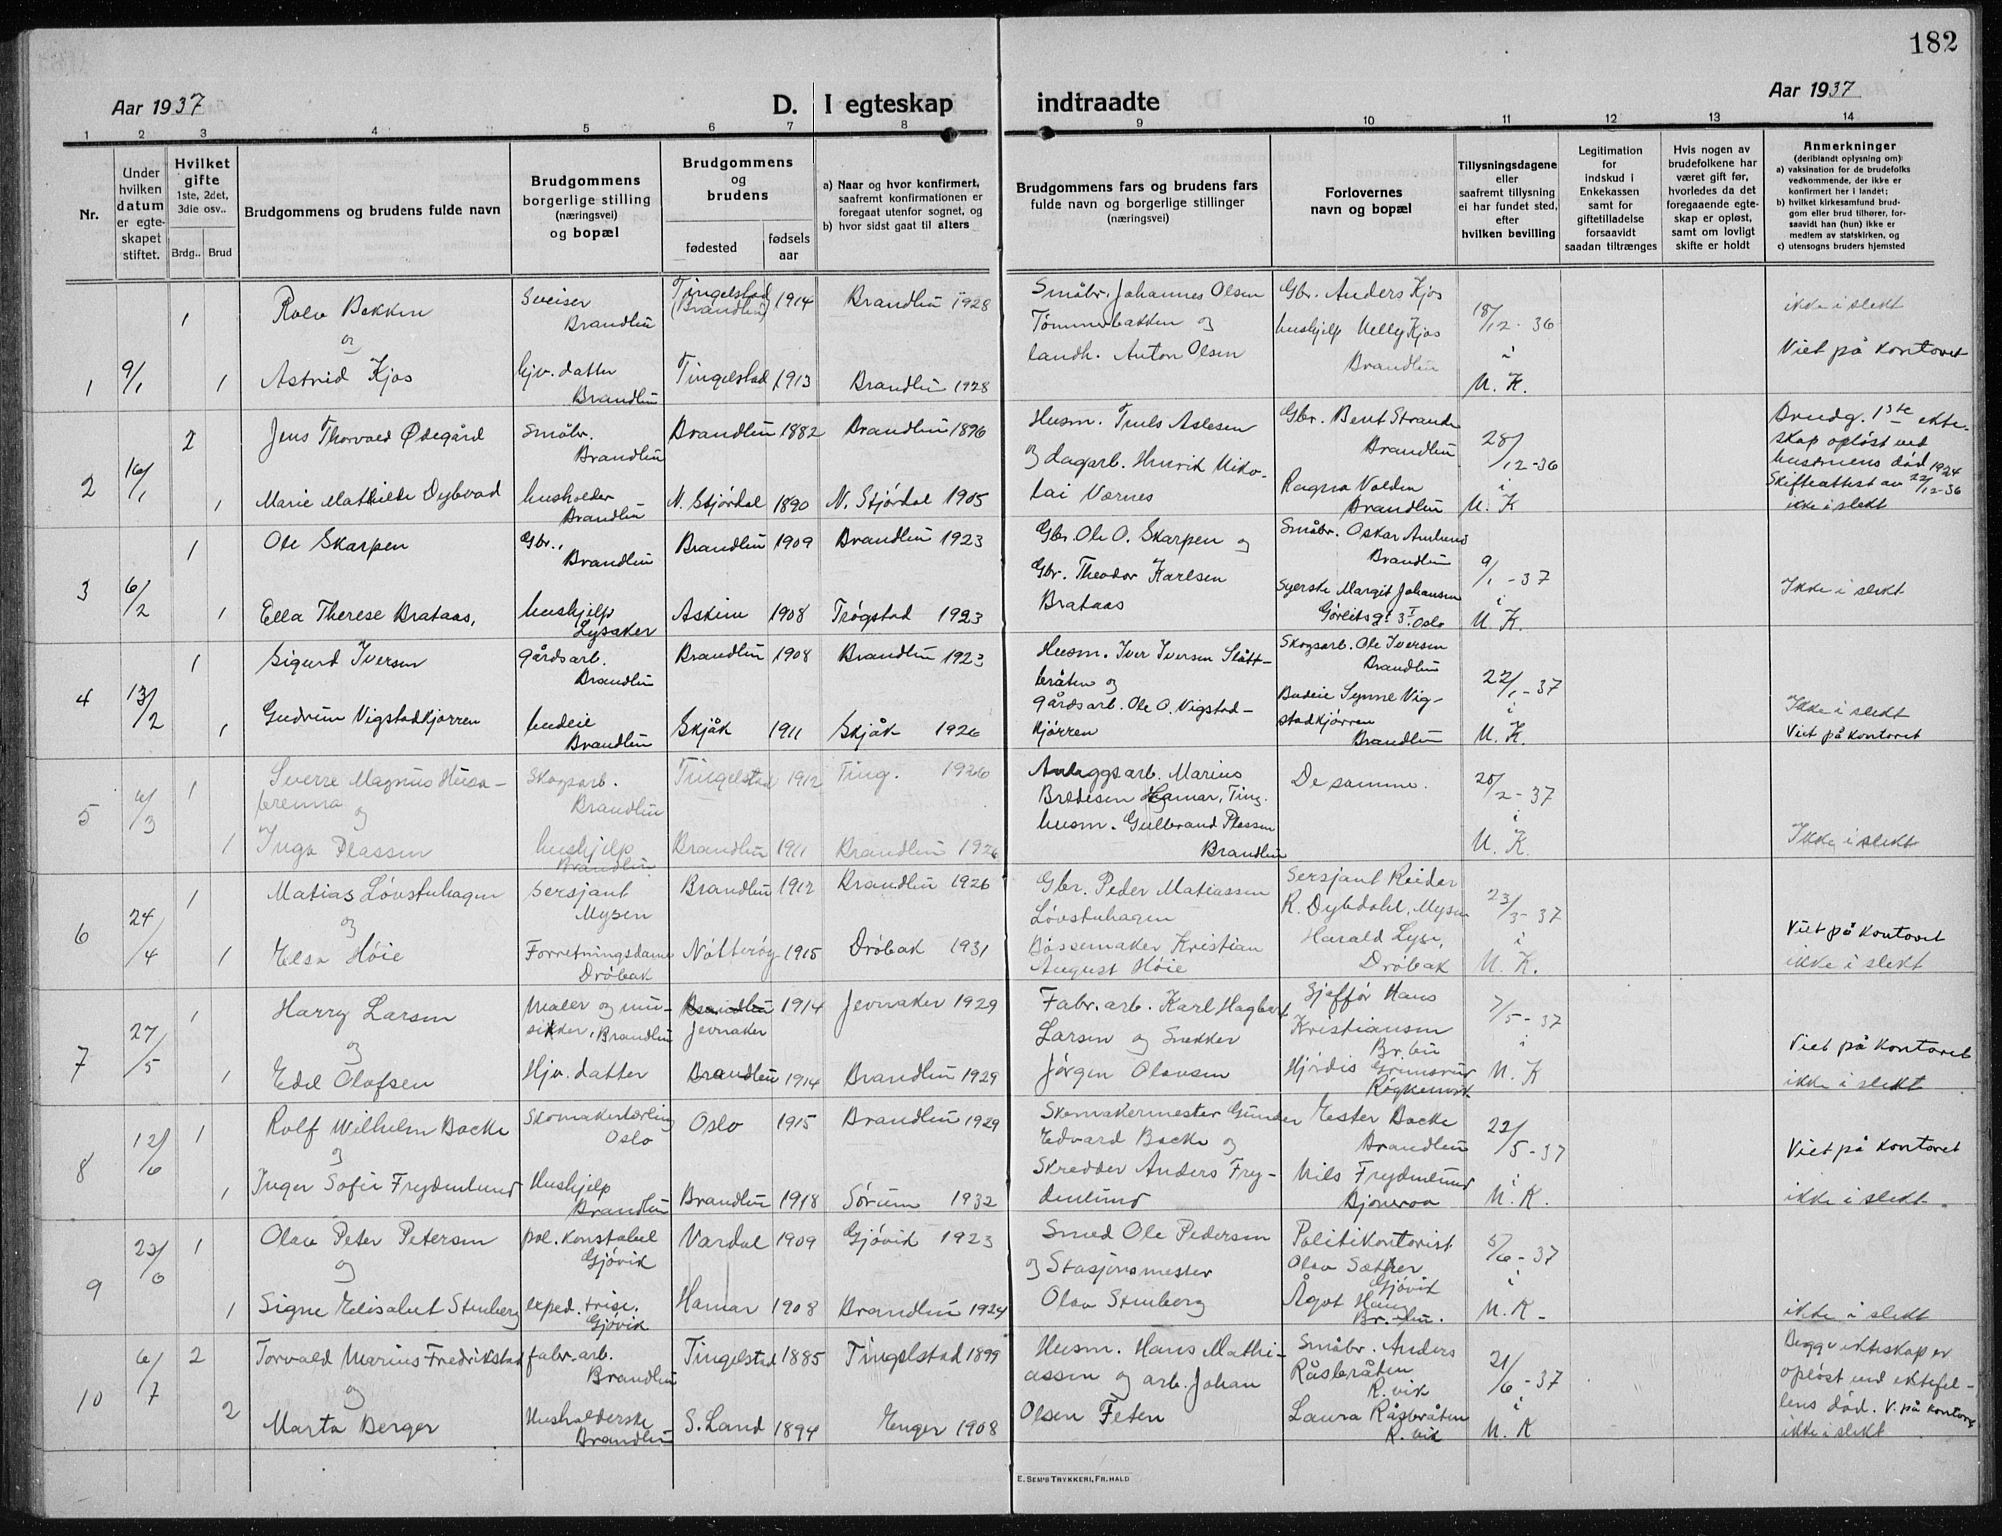 182
Aar 1937
D. I egteskap indtraadte
Aar 1937
1 2 3 4 5 6 7 8 9 10 11 12 13 14
Nr.
Under hvilken datum er egteskapet stiftet.
Hvilket gifte
1ste, 2det, 3die osv..
Brdg.. Brud
Brudgommens og brudens fulde navn
Brudgommens borgerlige stilling (næringsvei) og bopæl
Brudgommens og brudens
fødested
fødsels aar
a) Naar og hvor konfirmert, saafremt konfirmationen er foregaat utenfor sognet, og
b) hvor sidst gaat til alters
Brudgommens fars og brudens fars fulde navn og borgerlige stillinger (næringsvei)
Forlovernes navn og bopæl
Tillysningsdagene eller saafremt tillysning ei har fundet sted, efter hvilken bevilling
Legitimation for indskud i Enkekassen samt for giftetilladelse forsaavidt saadan tiltrænges
Hvis nogen av brudefolkene har været gift før, hvorledes da det foregaaende egteskap er opløst, samt om lovligt skifte er holdt
Anmerkninger
(deriblandt oplysning om):
a) vaksination for de brudefolks vedkommende, der ikke er konfirmert her i landet;
b) hvilket kirkesamfund brudgom eller brud tilhører, forsaavidt han (hun) ikke er medlem av statskirken, og
c) utensogns bruders hjemsted
1 9/1 1 Rolv Bakken Sveiser Brandbu Tingelstad (Brandbu) 1914 Brandbu 1928 Småbr. Johannes Olsen Tømmerbakken og Gbr. Anders Kjos 18/12-36 ikke i slekt
og
1 Astrid Kjos hjv. datter Brandbu Tingelstad 1913 Brandbu 1928 landh. Anton Olsen hushjelp Nelly Kjos Brandbu i N. K. Viet på kontoret
2 16/1 2 Jens Thorvald Ødegård Småbr. Brandbu Brandbu 1882 Brandbu 1896 Husm. Truls Aslesen Gbr. Bent Strande Brandbu 28/12-36 Brudg. 1ste ekteskap opløst ved hustruens død 1924
1 Marie Mathilde Dybvad husholder Brandbu N. Stjørdal 1890 N. Stjørdal 1905 og dagarb. Henrik Nikolai Værnes Ragna Volden Brandbu i N. K Skifteattest av 22/12-36 ikke i slekt
3 6/2 1 Ole Skarpen Gbr., Brandbu Brandbu 1909 Brandbu 1923 Gbr. Ole O. Skarpen og Småbr. Oskar Amlund Brandbu 9/1-37
1 Ella Therese Brataas, hushjelp Lysaker Askim 1908 Trøgstad 1923 Gbr. Theodor Karlsen Brataas Syerske Margit Johansen Gørbitsgt 3 I Oslo i N. K. Ikke i slekt
4 13/2 1 Sigurd Iversen gårdsarb. Brandbu Brandbu 1908 Brandbu 1923 Husm. Iver Iversen Slåttbråten og Skogsarb. Ole Iversen Brandbu 22/1-37
1 Gudrun Vigstadkjørren budeie Brandbu Skjåk 1911 Skjåk 1926 gårdsarb. Ole O. Vigstadkjørren Budeie Synne Vigstadkjørren Brandbu i N. K. Ikke i slekt Viet på kontoret
5 6/3 1 Sverre Magnus Husabrenna og Skogsarb. Brandbu Tingelstad 1912 Ting. 1926 Anleggsarb. Marius Bredesen Hamar, Ting. De samme. 20/2-37
1 Inga Plassen hushjelp Brandbu Brandbu 1911 Brandbu 1926 husm. Gulbrand Plassen Brandbu i N. K. Ikke i slekt
6 24/4 1 Matias Løvstuhagen og Sersjant Mysen Brandbu 1912 Brandbu 1926 Gbr. Peder Matiassen Løvstuhagen Sersjant Reidar R. Dybdahl, Mysen 23/3-37 Viet på kontoret
1 Elsa Høie Forretningsdame Drøbak Nøtterøy 1915 Drøbak 1931 Bøssemaker Kristian August Høie Harald Lyse, Drøbak i N. K. ikke i slekt
7 27/5 1 Harry Larsen og Maler og musikker, Brandbu Brandbu Jevnaker 1914 Jevnaker 1929 Fabr. arb. Karl Hagbart Larsen og Snekker Sjåfør Hans Kristiansen Br. bu 7/5-37 Viet på kontoret
1 Edel Olafsen Hjv. datter Brandbu 1914 Brandbu 1929 Jørgen Olavsen Hjørdis Grinsrud Røykenvik i N. K ikke i slekt
8 12/6 1 Rolf Wilhelm Backe og Skomakerlærling Oslo Oslo 1915 Brandbu 1929 Skomakermester Gunder Edvard Backe og Ester Backe Brandbu 22/5-37 Viet på kontoret
1 Inger Sofie Frydenlund Hushjelp Brandbu Brandbu 1918 Sørum 1932 Skredder Anders Frydenlund Nils Frydenlund Bjoneroa i N. K. ikke i slekt
9 22/6 1 Olav Peter Petersen og pol. konstabel Gjøvik Vardal 1909 Gjøvik 1923 Smed Ole Pedersen og Stasjonsmester Politikontorist Olav Sæther Gjøvik 5/6-37
1 Signe Elisabet Stenberg exped. trise. Gjøvik Hamar 1908 Brandbu 1924 Olav Stenberg Ågot Haug Br. bu. i N. K. ikke i slekt
10 6/7 2 Torvald Marius Fredrikstad og fabr. arb. Brandbu Tingelstad 1885 Tingelstad 1899 Husm. Hans Mathiassen og arb. Johan Småbr. Anders Råsbråten R. vik 21/6-37 Begge ekteskap er opløst ved ektefellens død. V. på kontoret
2 Marta Berger Husholderske Brandbu S. Land 1894 Enger 1908 Olsen Feten Laura Råsbråten R. vik i N. K ikke i slekt
E. SEM'S TRYKKERI, FR.HALD